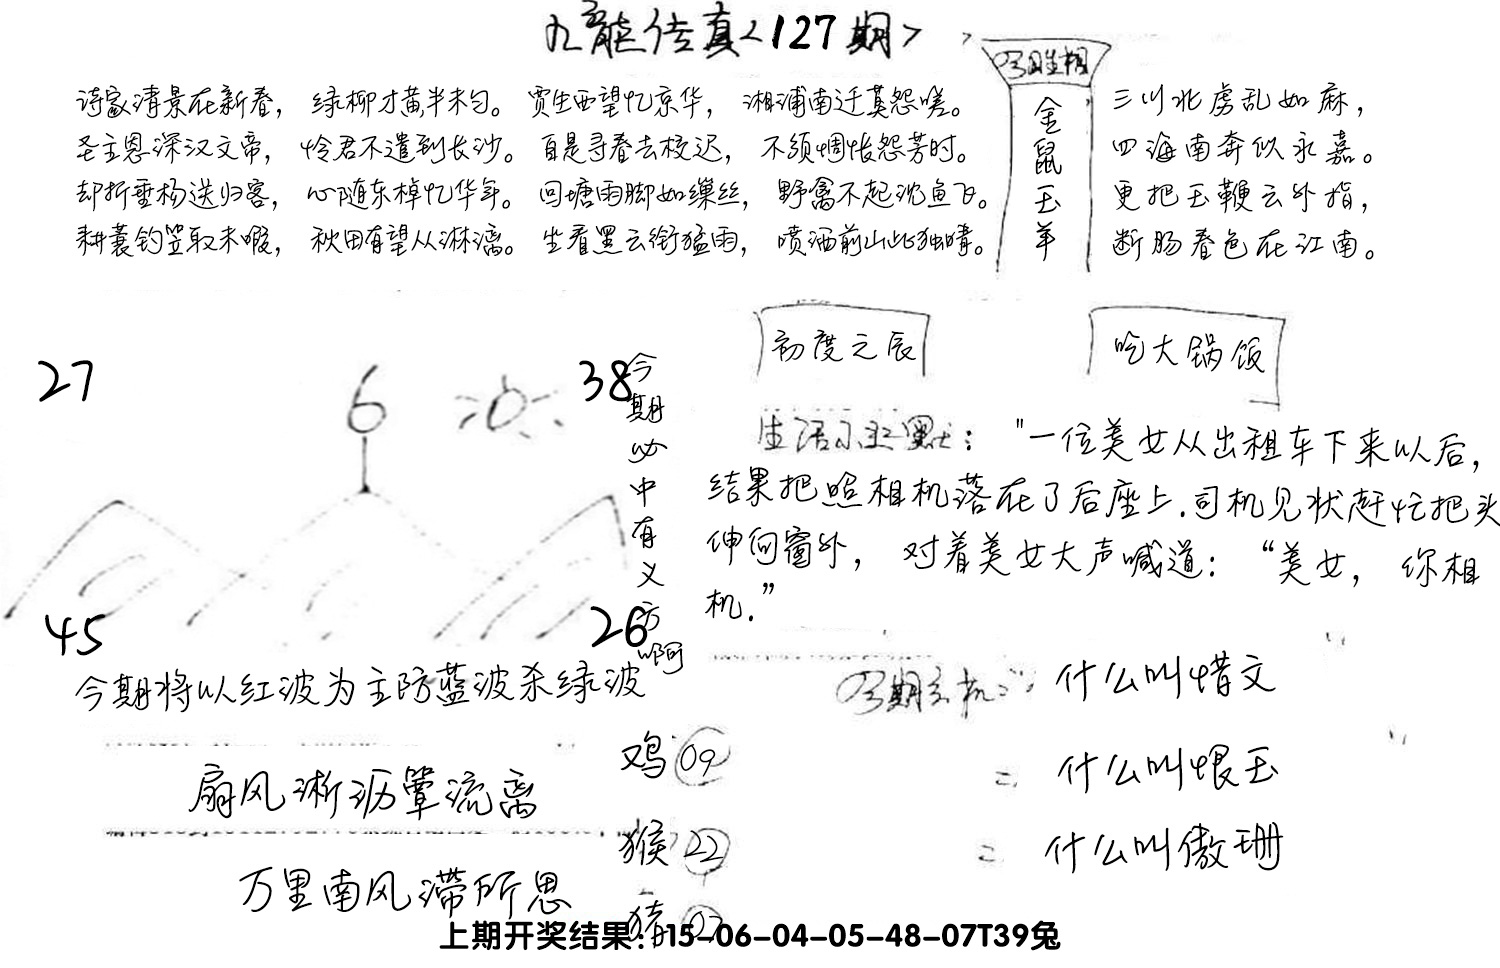 九龍传真<127期>
诗家清景在新春，绿柳才黄半未匀。贾生西望忆京华，湘浦南迁莫怨嗟。
圣主恩深汉文帝，怜君不遣到长沙。自是寻春去校迟，不须惆怅怨芳时。
却折垂杨送归客，心随东棹忆华年。回塘雨脚如缫丝，野禽不起沈鱼飞。
耕蓑钓笠取未暇，秋田有望从淋漓。坐看黑云衔猛雨，喷洒前山此独晴。
今期生相
金鼠玉羊
三川北虏乱如麻，
四海南奔似永嘉。
更把玉鞭云外指，
断肠春色在江南。
27
6
38
45
26
今期必中有义方啊
今期将以红波为主防蓝波杀绿波
初度之辰
吃大锅饭
生活小幽默："一位美女从出租车下来以后，
结果把照相机落在了后座上.司机见状赶忙把头
伸向窗外，对着美女大声喊道：“美女，你相
机.”
今期玄机：什么叫惜文
= 什么叫恨玉
= 什么叫傲珊
扇风淅沥簟流离
万里南风滞所思
鸡 09
猴 22
猪 07
上期开奖结果：15-06-04-05-48-07T39兔